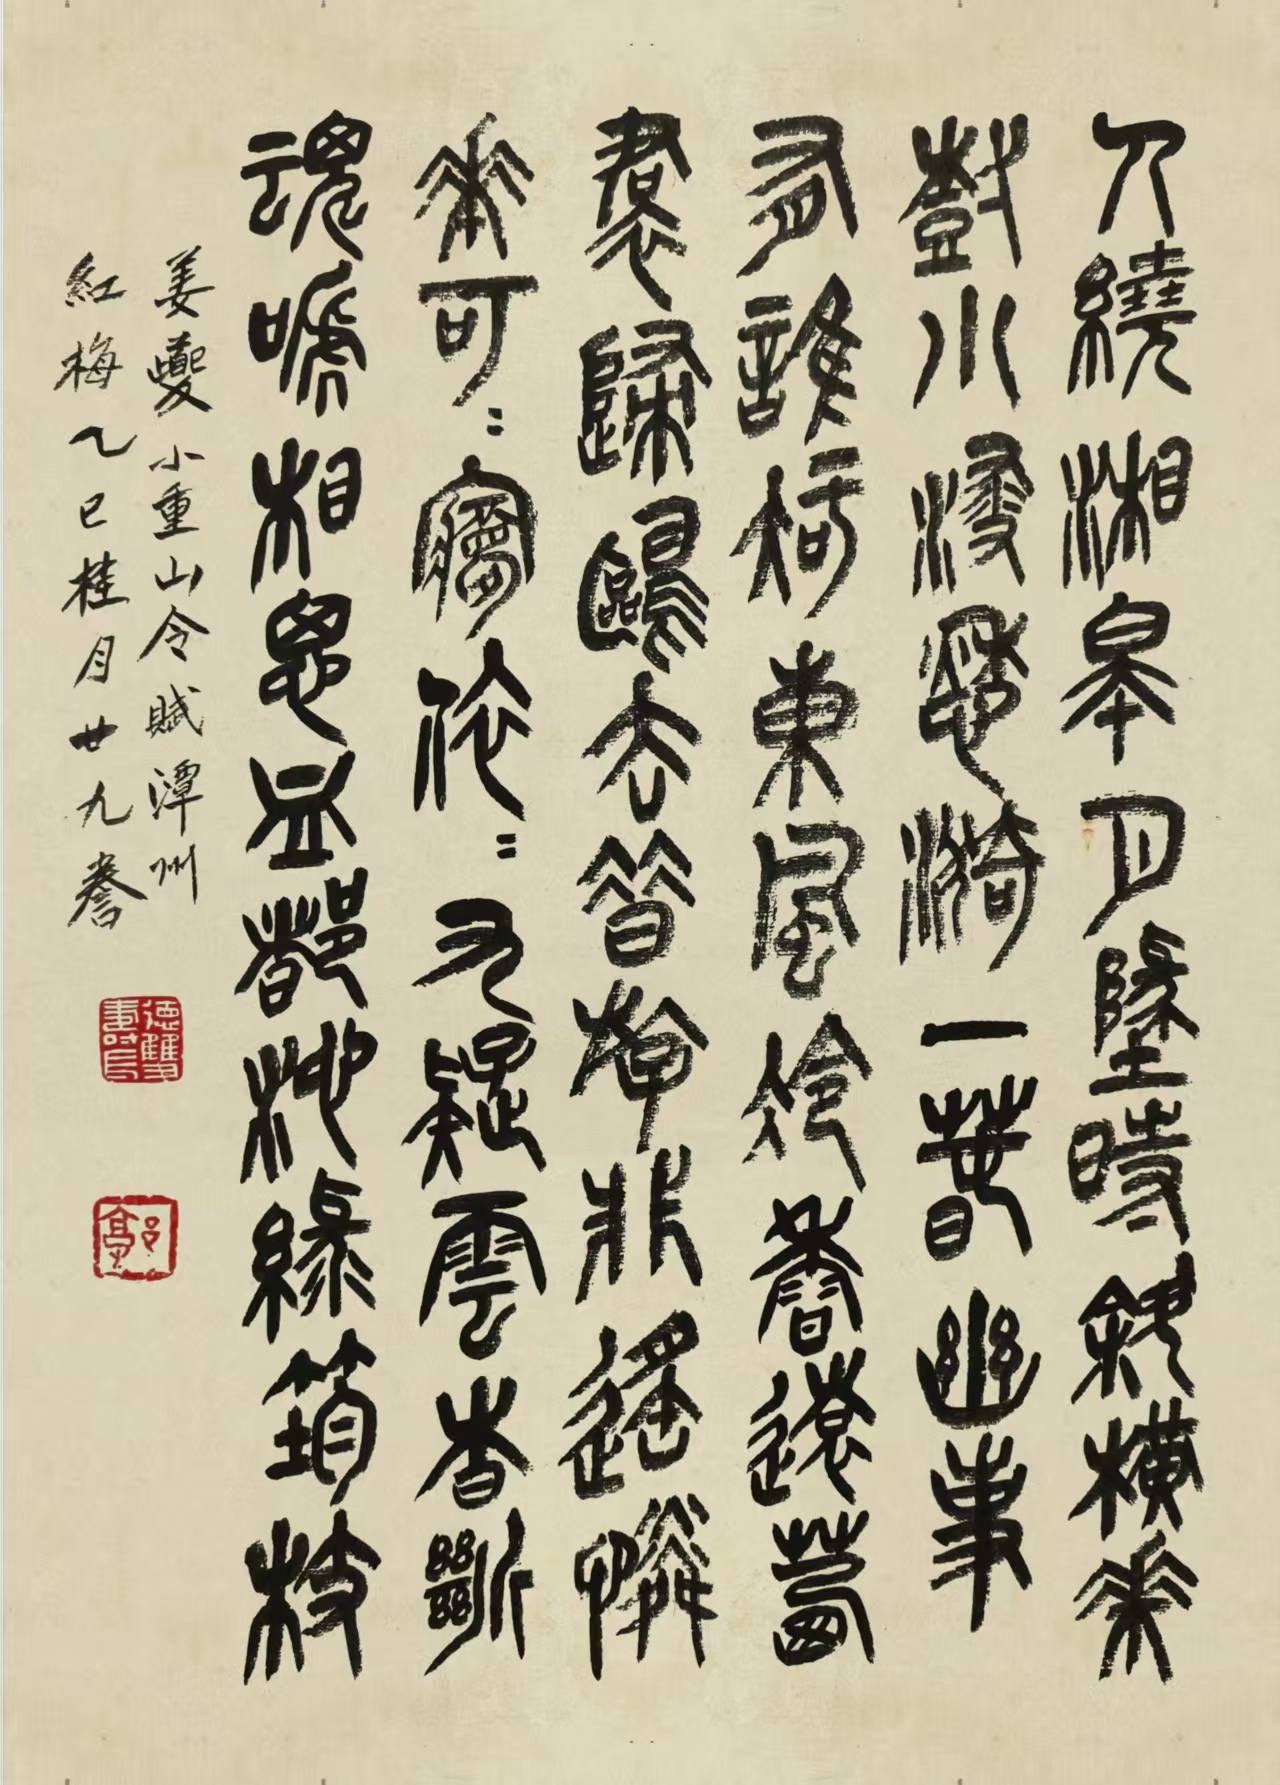 人繞湘皋月墜時斜橫花
樹小浸愁漪一春幽事
有誰知東風冷香遠茜
裙歸鷗去昔遊非遙憐
花可〻夢依〻九疑雲杳斷
魂啼相思血都沁綠筠枝
姜夔小重山令賦潭州
紅梅乙巳桂月廿九誊